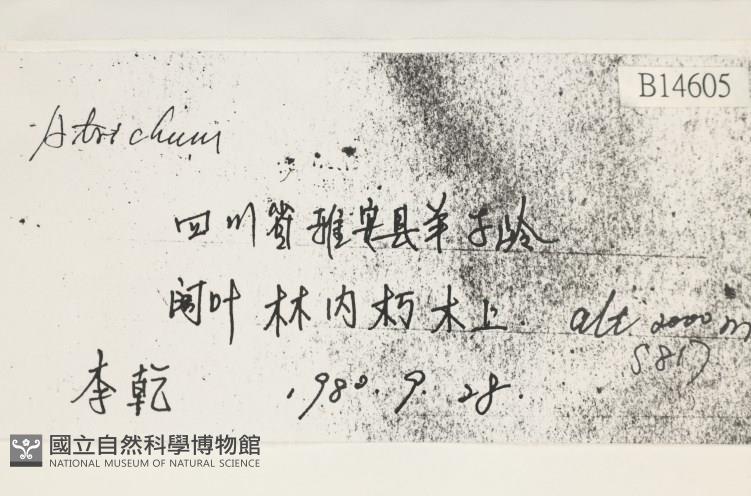 B14605
Atrichum
四川省雅安县羊子岭
阔叶林内朽木上 alt 2000 m
5817
李乾 1980. 9. 28.
國立自然科學博物館
NATIONAL MUSEUM OF NATURAL SCIENCE